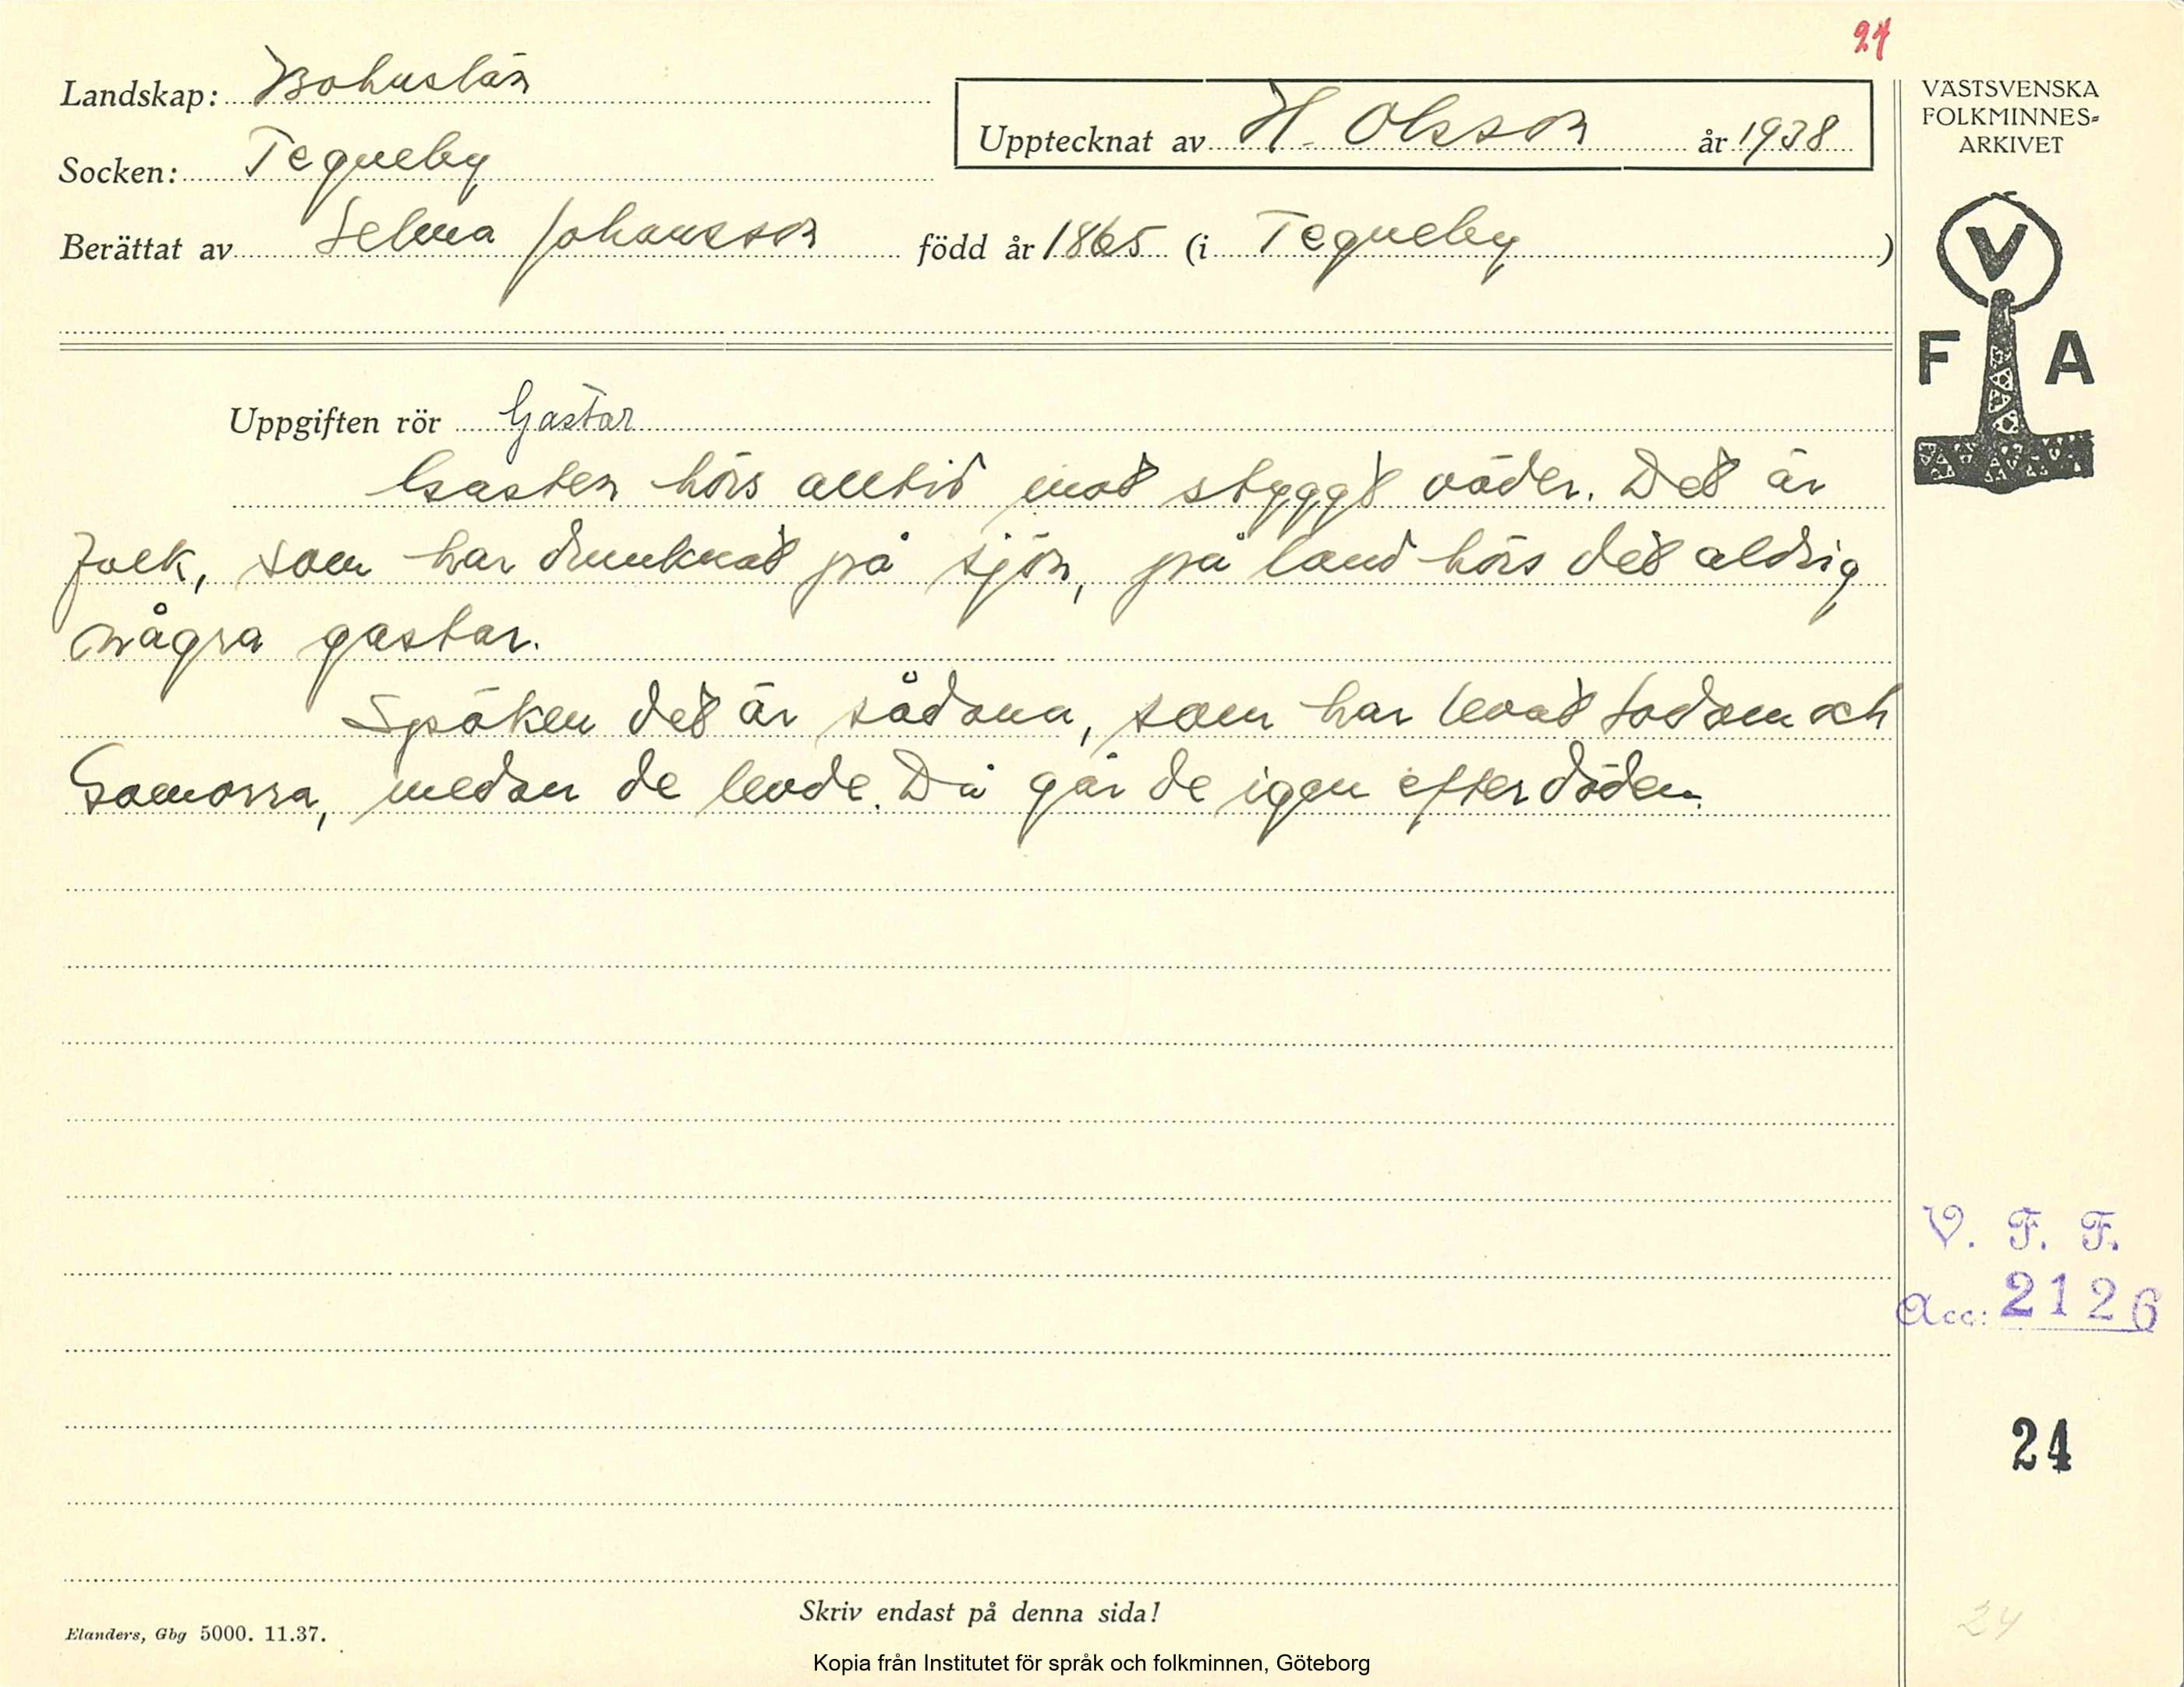 24
Landskap: Bohuslän
Upptecknat av H. Olsson år 1938
Socken: Tegneby
Berättat av Selma Johansson född år 1865 (i Tegneby )
VÄSTSVENSKA
FOLKMINNES-
ARKIVET
V
F A
Uppgiften rör Gastar
Gasten hörs alltid mot styggt väder. Det är
folk, som har drunknat på sjön, på land hörs det aldrig
några gastar.
Spöken det är sådana, som har levat Sodom och
Gomorra, medan de levde. Då går de igen efter döden.
V. F. F.
Acc: 2126
24
Skriv endast på denna sida!
24
Elanders, Gbg 5000. 11.37.
Kopia från Institutet för språk och folkminnen, Göteborg